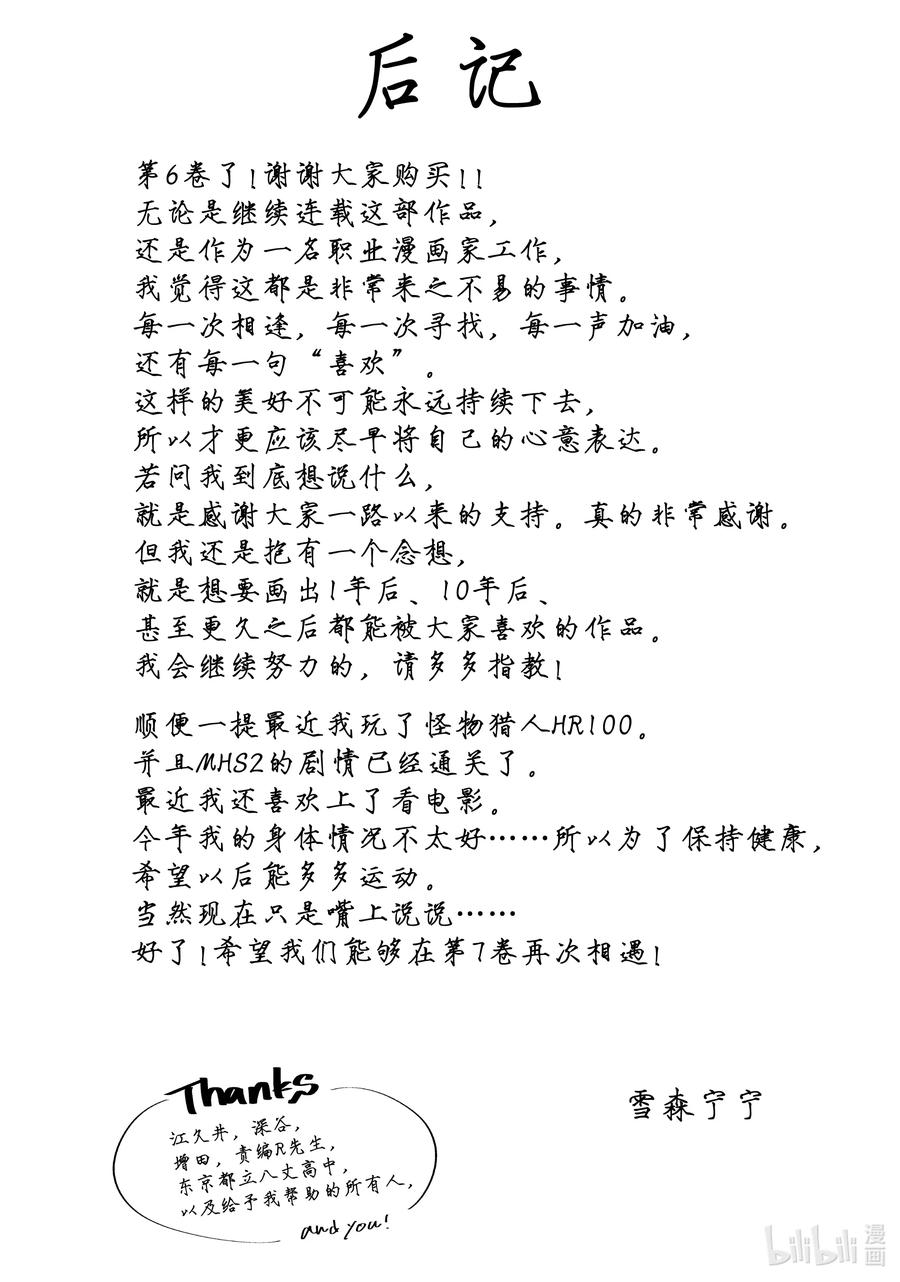 后记
第6卷了！谢谢大家购买！！
无论是继续连载这部作品，
还是作为一名职业漫画家工作，
我觉得这都是非常来之不易的事情。
每一次相逢，每一次寻找，每一声加油，
还有每一句“喜欢”。
这样的美好不可能永远持续下去，
所以才更应该尽早将自己的心意表达。
若问我到底想说什么，
就是感谢大家一路以来的支持。真的非常感谢。
但我还是抱有一个念想，
就是想要画出1年后、10年后、
甚至更久之后都能被大家喜欢的作品。
我会继续努力的，请多多指教！
顺便一提最近我玩了怪物猎人HR100。
并且MHS2的剧情已经通关了。
最近我还喜欢上了看电影。
今年我的身体情况不太好……所以为了保持健康，
希望以后能多多运动。
当然现在只是嘴上说说……
好了！希望我们能够在第7卷再次相遇！
雪森宁宁
Thanks
江久井，深谷，
增田，责编R先生，
东京都立八丈高中，
以及给予我帮助的所有人，
and you!
bilibili漫画